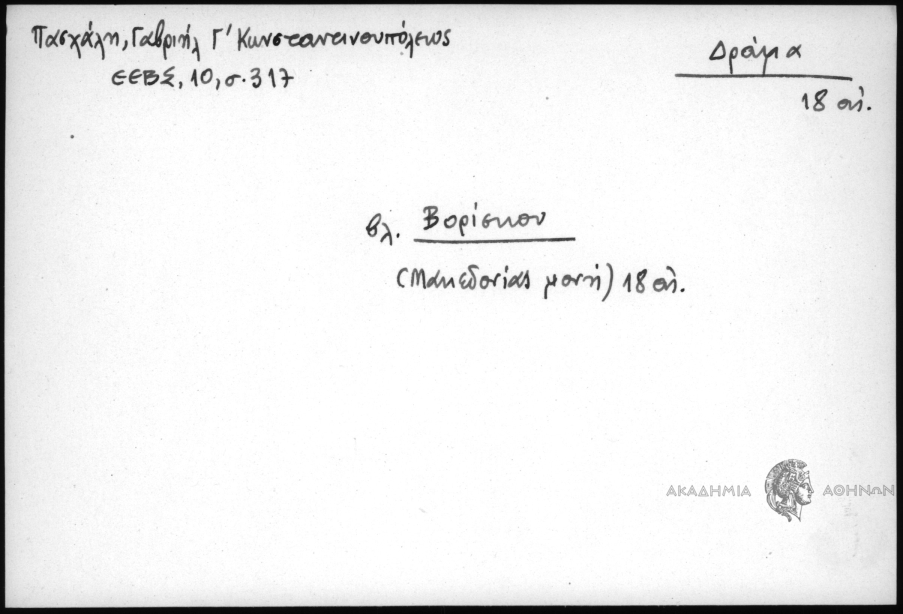 Πασχάλη, Γαβριήλ Γ' Κωνσταντινουπόλεως
ΕΕΒΣ, 10, σ. 317
Δράμα
18 αἰ.
βλ. Βορίσκου
(Μακεδονίας μονή) 18 αἰ.
ΑΚΑΔΗΜΙΑ ΑΘΗΝΩΝ